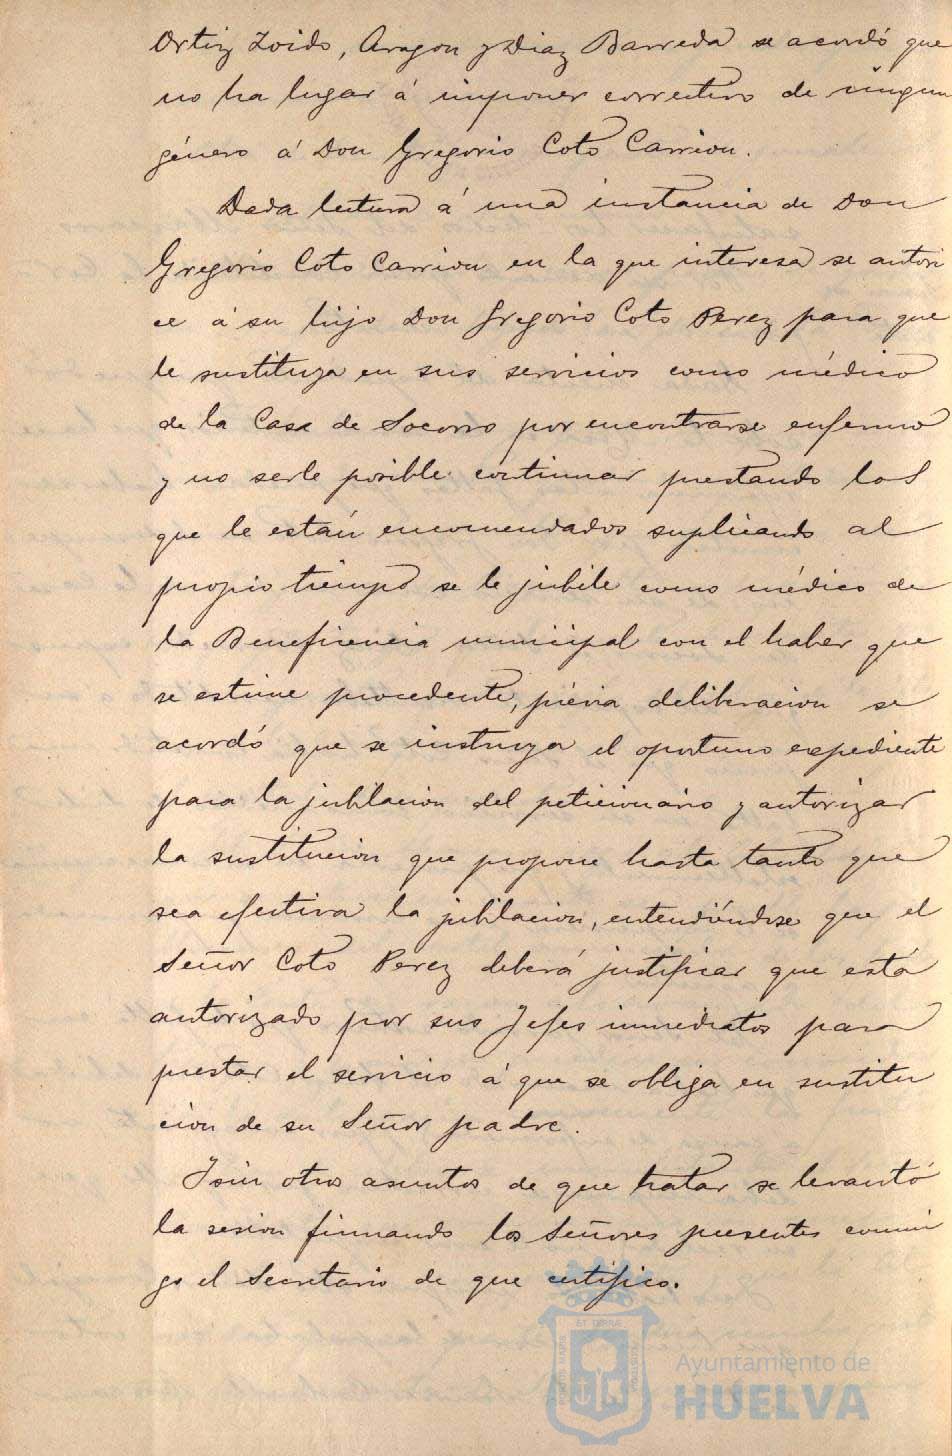 Ortiz Zoido, Aragon y Diaz Barreda se acordó que
no ha lugar á imponer correctivo de ningun
género á Don Gregorio Coto Carrion.
Dada lectura á una instancia de Don
Gregorio Coto Carrion en la que interesa se autori
ce á su hijo Don Gregorio Coto Perez para que
le sustituya en sus servicios como médico
de la Casa de Socorro por encontrarse enfermo
y no serle posible continuar prestando los
que le están encomendados suplicando al
propio tiempo se le jubile como médico de
la Beneficencia municipal con el haber que
se estime procedente, prévia deliberacion se
acordó que se instruya el oportuno expediente
para la jubilacion del peticionario y autorizar
la sustitucion que propone hasta tanto que
sea efectiva la jubilacion, entendiéndose que el
Señor Coto Perez deberá justificar que está
autorizado por sus Jefes inmediatos para
prestar el servicio á que se obliga en sustitu
cion de su Señor padre.
Y sin otros asuntos de que tratar se levantó
la sesion firmando los Señores presentes conmi
go el Secretario de que certifico.
Ayuntamiento de
HUELVA